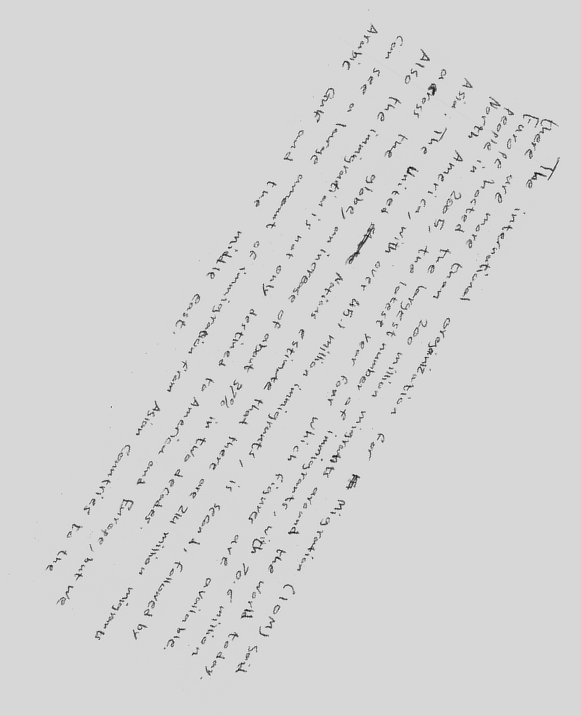 The international organization for Migration (IOM) said
there are more than 200 million migrants around the world today.
Europe hosted the largest number of immigrants, with 70.6 million
people in 2005, the latest year for which figures are available.
North America, with over 45.1 million immigrants, is scand, followed by
Asia. The United Nations estimate that there are 214 million migrants
across the globe, an increase of about 37% in two decades.
Also the immigration is not only destined to America and Europe, but we
can see a large amount of immigration from Asian Countries to the
Arabic Gulf and the middle east